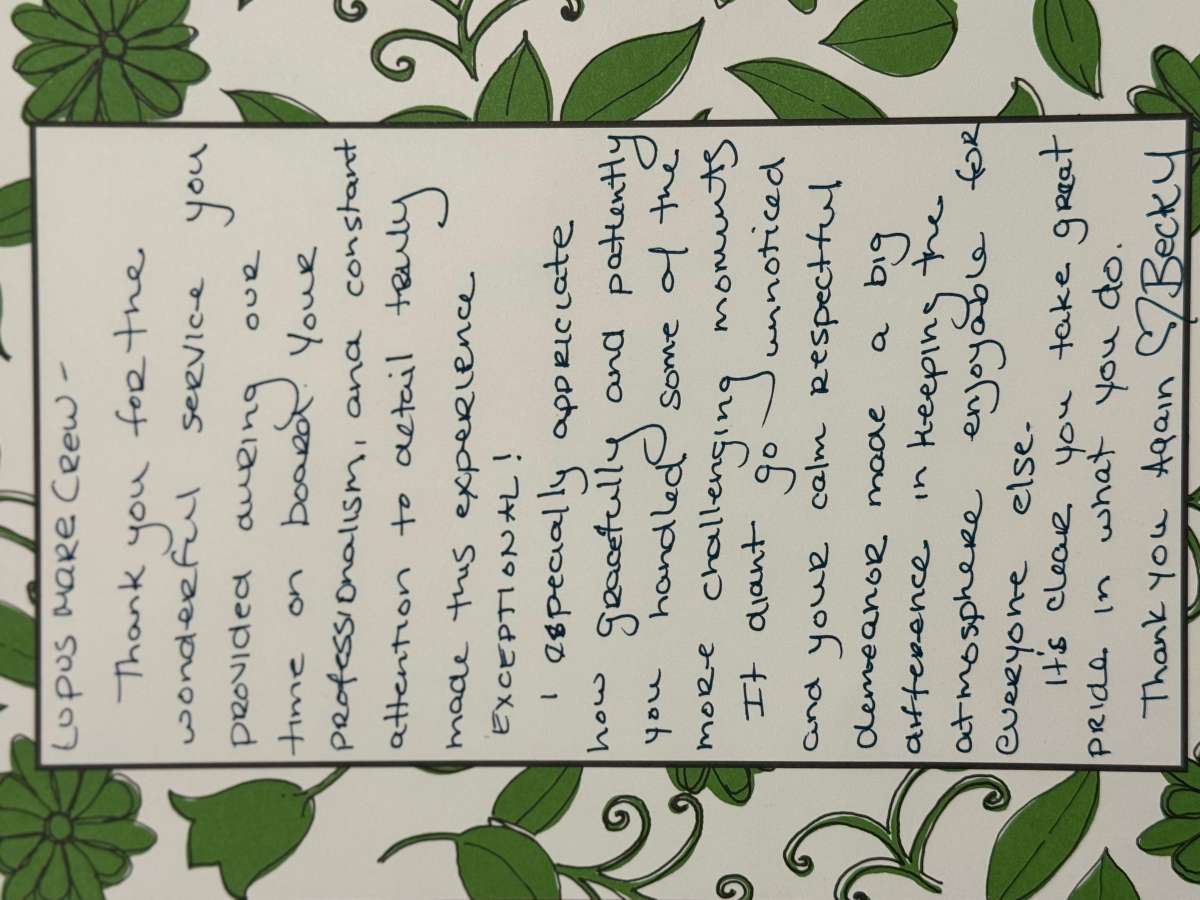 Lupus Mare Crew -
Thank you for the
wonderful service you
provided during our
time on board. Your
professionalism, and constant
attention to detail truly
made this experience
EXCEPTIONAL!
I especially appriciate
how gracefully and patiently
you handled some of the
more challenging moments
It didnt go unnoticed
and your calm respectful
demeanor made a big
difference in keeping the
atmosphere enjoyable for
everyone else.
It's clear you take great
pride in what you do.
Thank you Again ♡ Becky